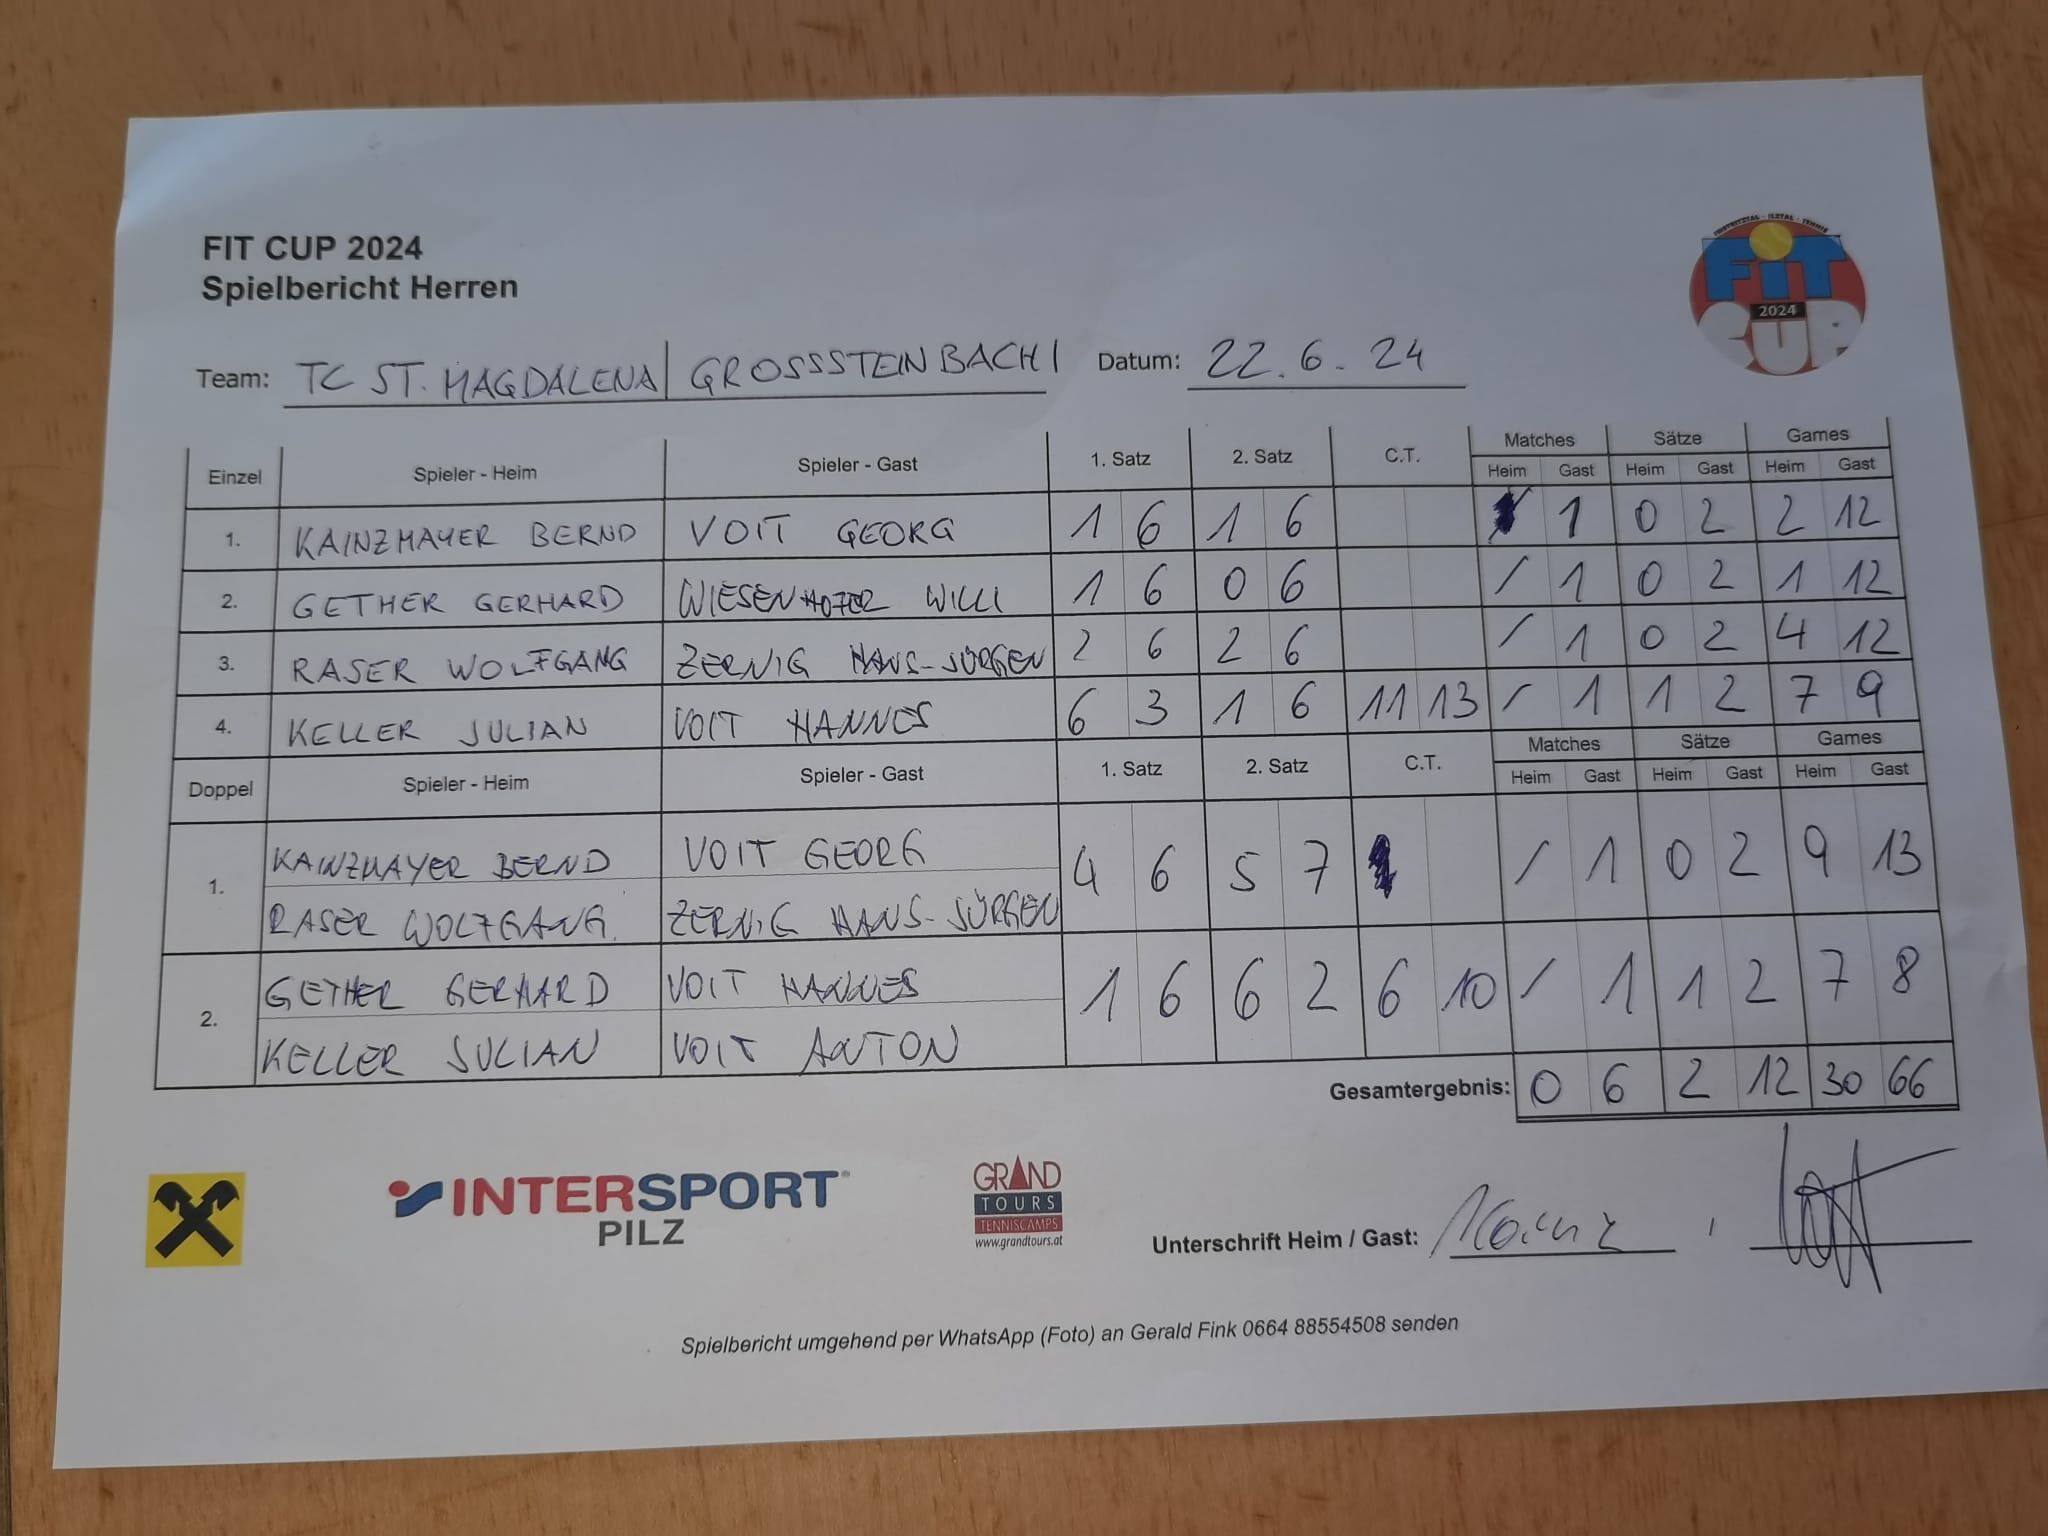 FIT CUP 2024
Spielbericht Herren
FIT
2024
CUP
Team: TC ST. MAGDALENA | GROSSSTEINBACH 1 Datum: 22.6.24
Einzel Spieler - Heim Spieler - Gast 1. Satz 2. Satz C.T. Matches Sätze Games
Heim Gast Heim Gast Heim Gast
1. KAINZMAYER BERND VOIT GEORG 1 6 1 6 1 0 2 2 12
2. GETHER GERHARD WIESENHOFER WILLI 1 6 0 6 / 1 0 2 1 12
3. RASER WOLFGANG ZERNIG HANS-JÜRGEN 2 6 2 6 / 1 0 2 4 12
4. KELLER JULIAN VOIT HANNES 6 3 1 6 11 13 / 1 1 2 7 9
Doppel Spieler - Heim Spieler - Gast 1. Satz 2. Satz C.T. Matches Sätze Games
Heim Gast Heim Gast Heim Gast
KAINZMAYER BERND VOIT GEORG
1. 4 6 5 7 / 1 0 2 9 13
RASER WOLFGANG. ZERNIG HANS-JÜRGEN
GETHER GERHARD VOIT HANNES
2. 1 6 6 2 6 10 / 1 1 2 7 8
KELLER JULIAN VOIT ANTON
Gesamtergebnis: 0 6 2 12 30 66
INTERSPORT®
PILZ
GRAND
TOURS
TENNISCAMPS
www.grandtours.at
Unterschrift Heim / Gast:
Spielbericht umgehend per WhatsApp (Foto) an Gerald Fink 0664 88554508 senden